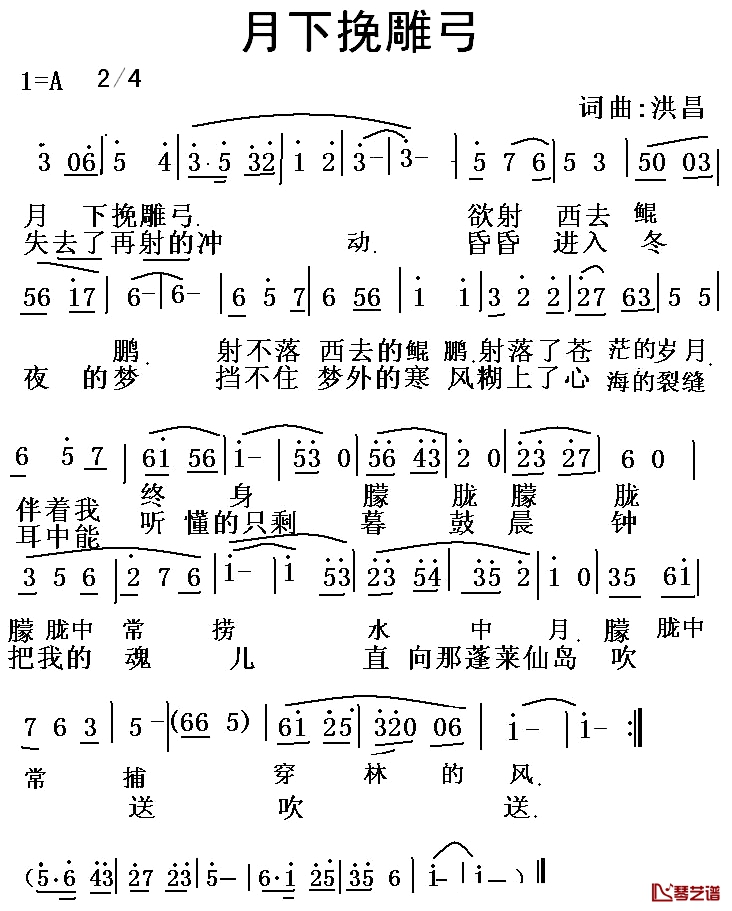 月下挽雕弓
1=A 2/4
词曲:洪昌
3 06 | 5 4 | 3·5 32 | 1 2 | 3- | 3- | - | 5 7 6 | 5 3 | 50 03 |
月 下挽雕弓. 欲射 西去 鲲
失去了再射的冲 动. 昏昏 进入 冬
56 17 | 6- | 6- | 6 5 7 | 6 56 | 1 1 | 3 2 2 | 27 63 | 5 5 |
鹏. 射不落 西去的鲲 鹏.射落了苍 茫的岁月.
夜 的梦 挡不住 梦外的寒 风糊上了心 海的裂缝
6 5 7 | 61 56 | 1- | 53 0 | 56 43 | 2 0 | 23 27 | 6 0 |
伴着我 终 身 朦 胧朦 胧
耳中能 听 懂的只剩 暮 鼓晨 钟
3 5 6 | 2 7 6 | 1- | 1 53 | 23 54 | 35 2 | 1 0 | 35 61 |
朦 胧中 常 捞 水 中 月.朦 胧中
把我的 魂 儿 直 向那蓬莱仙岛 吹
7 6 3 | 5- | (66 5) | 61 25 | 320 06 | 1- | 1- :||
常 捕 穿 林 的 风.
送 吹 送.
(5·6 43 | 27 23 | 5- | 6·1 235 | 35 6 | 1- | 1- )||
琴艺谱